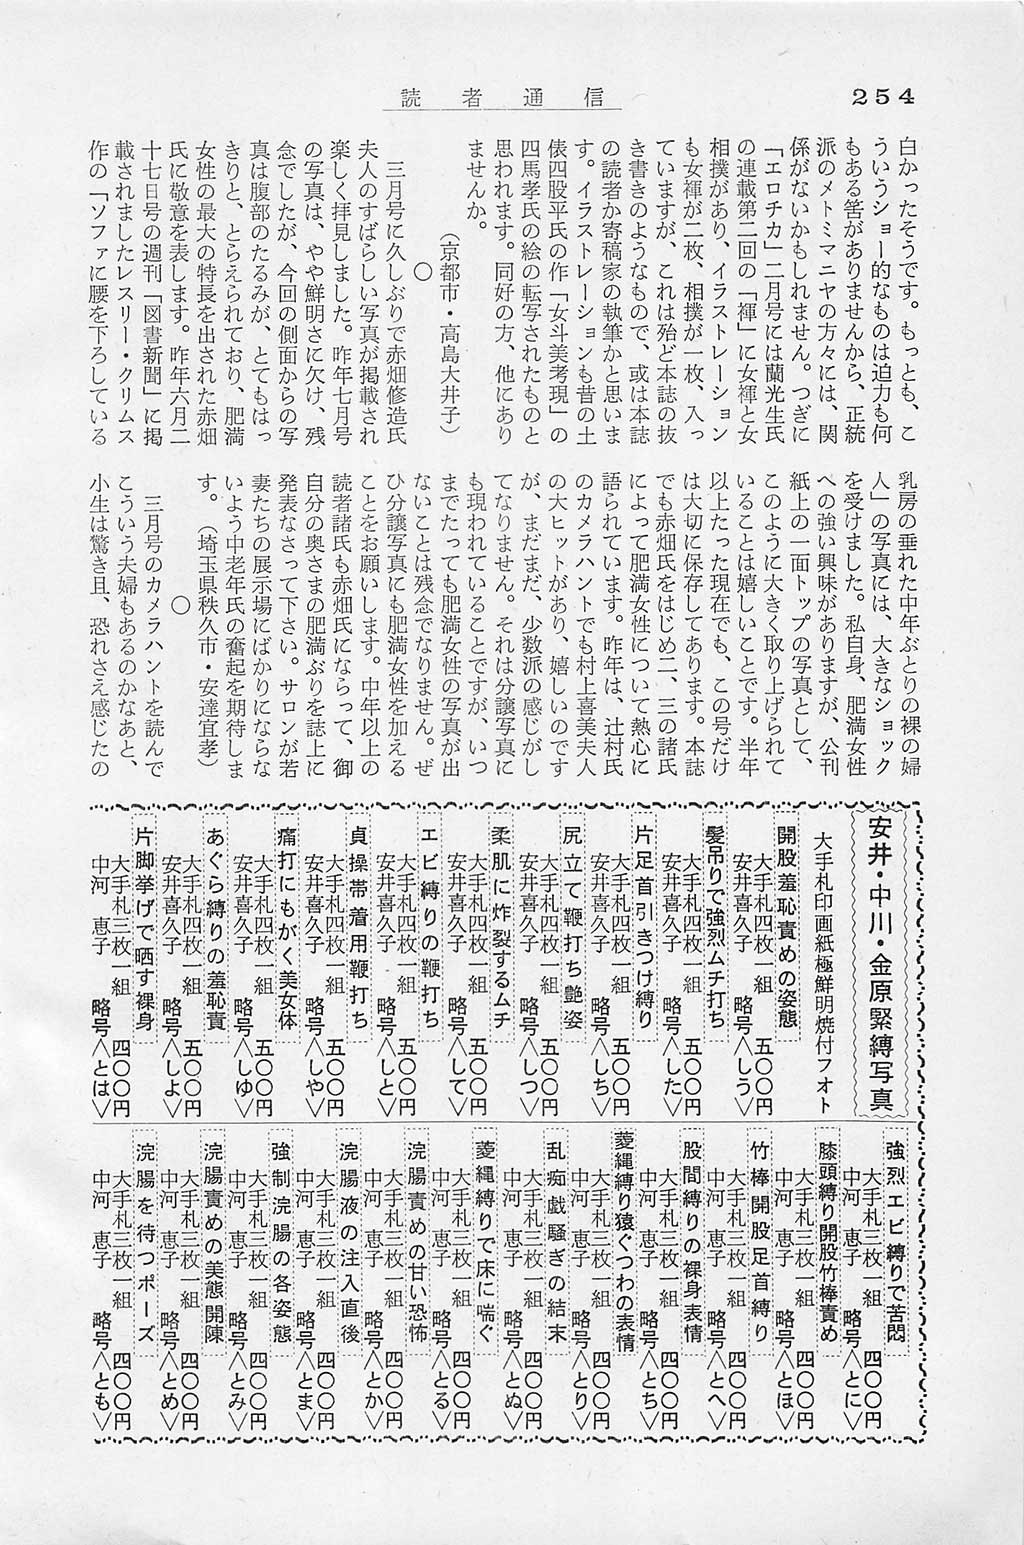 254
読者通信
白かったそうです。もっとも、こ
ういうショー的なものは迫力も何
もある筈がありませんから、正統
派のメトミマニヤの方々には、関
係がないかもしれません。つぎに
「エロチカ」二月号には蘭光生氏
の連載第二回の「褌」に女褌と女
相撲があり、イラストレーション
も女褌が二枚、相撲が一枚、入っ
ていますが、これは殆ど本誌の抜
き書きのようなもので、或は本誌
の読者か寄稿家の執筆かと思いま
す。イラストレーションも昔の土
俵四股平氏の作「女斗美考現」の
四馬孝氏の絵の転写されたものと
思われます。同好の方、他にあり
ませんか。
(京都市・高島大井子)
○
三月号に久しぶりで赤畑修造氏
夫人のすばらしい写真が掲載され
楽しく拝見しました。昨年七月号
の写真は、やや鮮明さに欠け、残
念でしたが、今回の側面からの写
真は腹部のたるみが、とてもはっ
きりと、とらえられており、肥満
女性の最大の特長を出された赤畑
氏に敬意を表します。昨年六月二
十七日号の週刊「図書新聞」に掲
載されましたレスリー・クリムス
作の「ソファに腰を下ろしている
乳房の垂れた中年ぶとりの裸の婦
人」の写真には、大きなショック
を受けました。私自身、肥満女性
への強い興味がありますが、公刊
紙上の一面トップの写真として、
このように大きく取り上げられて
いることは嬉しいことです。半年
以上たった現在でも、この号だけ
は大切に保存してあります。本誌
でも赤畑氏をはじめ二、三の諸氏
によって肥満女性について熱心に
語られています。昨年は、辻村氏
のカメラハントでも村上喜美夫人
の大ヒットがあり、嬉しいのです
が、まだまだ、少数派の感じがし
てなりません。それは分譲写真に
も現われていることですが、いつ
までたっても肥満女性の写真が出
ないことは残念でなりません。ぜ
ひ分譲写真にも肥満女性を加える
ことをお願いします。中年以上の
読者諸氏も赤畑氏にならって、御
自分の奥さまの肥満ぶりを誌上に
発表なさって下さい。サロンが若
妻たちの展示場にばかりにならな
いよう中老年氏の奮起を期待しま
す。(埼玉県秩久市・安達宜孝)
○
三月号のカメラハントを読んで
こういう夫婦もあるのかなあと、
小生は驚き且、恐れさえ感じたの
安井・中川・金原緊縛写真
大手札印画紙極鮮明焼付フオト
開股羞恥責めの姿態
大手札四枚一組 五〇〇円
安井喜久子 略号〈しう〉
髪吊りで強烈ムチ打ち
大手札四枚一組 五〇〇円
安井喜久子 略号〈した〉
片足首引きつけ縛り
大手札四枚一組 五〇〇円
安井喜久子 略号〈しち〉
尻立て鞭打ち艶姿
大手札四枚一組 五〇〇円
安井喜久子 略号〈しつ〉
柔肌に炸裂するムチ
大手札四枚一組 五〇〇円
安井喜久子 略号〈して〉
エビ縛りの鞭打ち
大手札四枚一組 五〇〇円
安井喜久子 略号〈しと〉
貞操帯着用鞭打ち
大手札四枚一組 五〇〇円
安井喜久子 略号〈しや〉
痛打にもがく美女体
大手札四枚一組 五〇〇円
安井喜久子 略号〈しゆ〉
あぐら縛りの羞恥責
大手札四枚一組 五〇〇円
安井喜久子 略号〈しよ〉
片脚挙げで晒す裸身
大手札三枚一組 四〇〇円
中河恵子 略号〈とは〉
強烈エビ縛りで苦悶
大手札三枚一組 四〇〇円
中河恵子 略号〈とに〉
膝頭縛り開股竹棒責め
大手札三枚一組 四〇〇円
中河恵子 略号〈とほ〉
竹棒開股足首縛り
大手札三枚一組 四〇〇円
中河恵子 略号〈とへ〉
股間縛りの裸身表情
大手札三枚一組 四〇〇円
中河恵子 略号〈とち〉
菱縄縛り猿ぐつわの表情
大手札三枚一組 四〇〇円
中河恵子 略号〈とり〉
乱痴戯騒ぎの結末
大手札三枚一組 四〇〇円
中河恵子 略号〈とぬ〉
菱縄縛りで床に喘ぐ
大手札三枚一組 四〇〇円
中河恵子 略号〈とる〉
浣腸責めの甘い恐怖
大手札三枚一組 四〇〇円
中河恵子 略号〈とか〉
浣腸液の注入直後
大手札三枚一組 四〇〇円
中河恵子 略号〈とま〉
強制浣腸の各姿態
大手札三枚一組 四〇〇円
中河恵子 略号〈とみ〉
浣腸責めの美態開陳
大手札三枚一組 四〇〇円
中河恵子 略号〈とめ〉
浣腸を待つポーズ
大手札三枚一組 四〇〇円
中河恵子 略号〈とも〉